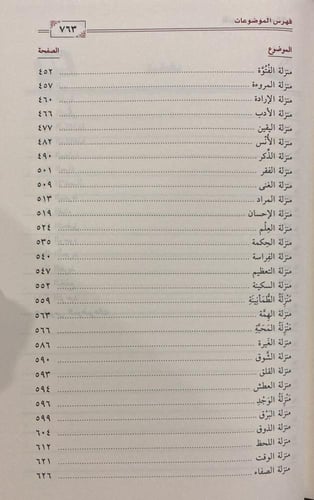 فهرس الموضوعات
٧٦٣
الموضوع الصفحة
منزلة الفُتُوَّة ٤٥٢
منزلة المروءة ٤٥٧
منزلة الإرادة ٤٦٠
منزلة الأدب ٤٦٦
منزلة اليقين ٤٧٧
منزلة الأُنْس ٤٨٢
منزلة الذِّكر ٤٩٠
منزلة الفقر ٥٠١
منزلة الغنى ٥٠٩
منزلة المراد ٥١٣
منزلة الإحسان ٥١٩
منزلة العِلْم ٥٢٤
منزلة الحكمة ٥٣٥
منزلة الفِراسة ٥٤٠
منزلة التعظيم ٥٤٧
منزلة السكينة ٥٥٢
مَنْزِلَة الطُّمَأْنِينَة ٥٥٩
منزلة الهِمَّة ٥٦٣
مَنْزِلَة المَحَبَّة ٥٦٦
منزلة الغَيرة ٥٨٦
منزلة الشَّوق ٥٩٠
منزلة القلق ٥٩٣
منزلة العطش ٥٩٤
مَنْزِلَةُ الوَجْدِ ٥٩٦
منزلة البَرْق ٥٩٩
منزلة الذوق ٦٠٤
منزلة اللحظ ٦١٢
منزلة الوقت ٦٢١
منزلة الصفاء ٦٢٦